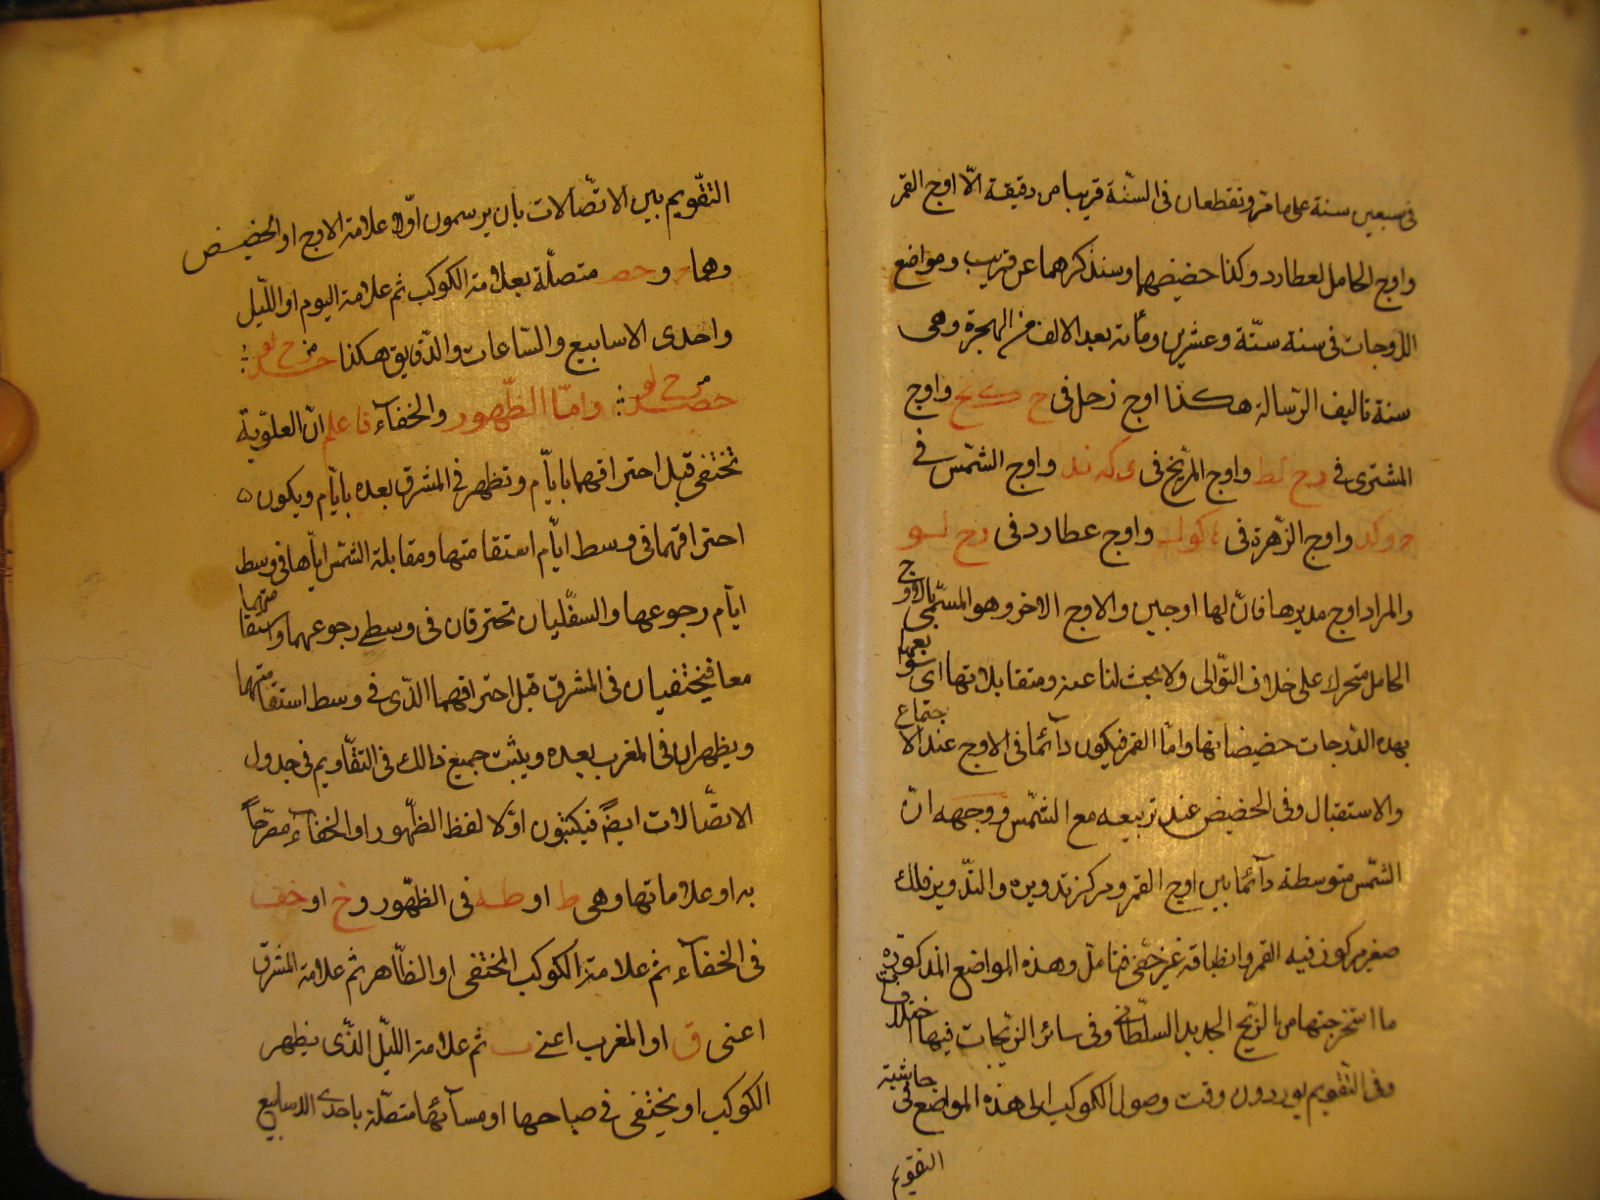 فى سبعين سنة على ما مرّ وتقطعان فى السّنة قريبا من دقيقة الّا اوج القمر
واوج الحامل لعطارد وكذا حضيضها وسنذكرهما عن قريب ومواضع
الاوجات فى سنة ستّة وعشرين ومائة بعد الالف من الهجرة وهى
سنة تاليف الرّسالة هكذا اوج زحل فى ح كح واوج
المشترى فى وح لط واوج المرّيخ فى كه ند واوج الشّمس فى
ح وكد واوج الزّهرة فى واوج عطارد فى رح لو
والمراد اوج مديرها فانّ لها اوجين والاوج الاخر وهو المسمّى باوج
الحامل متحرك على خلاف التّوالى ولا بحث لنا عنه ومتقابلاتها اى سوابعها
بهذه الدّرجات حضيضاتها وامّا القمر فيكون دآئما فى الاوج عند الاجتماع
والاستقبال وفى الحضيض عند تربيعه مع الشّمس ووجهه انّ
الشّمس متوسطة دآئما بين اوج القمر ومركز تدويره والتّدوير فلك
صغير مركوز فيه القمر وانطباقه غير خفّى فتامّل وهذه المواضع المذكورة
ما استخرجتها من الزّيج الجديد السّلطانى وفى سائر الزّيجات فيها اختلاف
وفى التّقويم يوردون وقت وصول الكوكب الى هذه المواضع فى حاشية
التقويم
التّقويم بين الاتّصالات بان يرسمون اوّلا علامة الاوج او الحضيض
وهما ج و حص متصلّة بعلامة الكوكب ثم علامة اليوم او اللّيل
واحدى الاسابيع والسّاعات والدّقايق هكذا
وامّا الظّهور والخفآء فاعلم انّ العلوّية
تختفى قبل احتراقهما بايّام وتظهر فى المشرق بعده بايّام ويكون
احتراقهما فى وسط ايّام استقامتها ومقابلة الشّمس ايّاها فى وسط
ايّام رجوعها والسفّليان تحترقان فى وسطى رجوعهما واستقامتهما
معا فيختفيان فى المشرق قبل احتراقهما الذّى فى وسط استقامتهما
ويظهران فى المغرب بعده ويثبت جميع ذالك فى التقّاويم فى جدول
الاتصّالات ايضً فيكتبون اوّلا لفظ الظّهور او الخفآء مصرّحاً
به او علاماتها وهى ط او طه فى الظّهور و خ او خف
فى الخفآء ثم علامة الكوكب المختفى او الظّاهر ثم علامة المشرق
اعنى ق او المغرب اعنى ب ثم علامة اللّيل الذّى يظهر
الكوكب او يختفى فى صباحها او مسآئها متصّلة باحدى الاسابيع